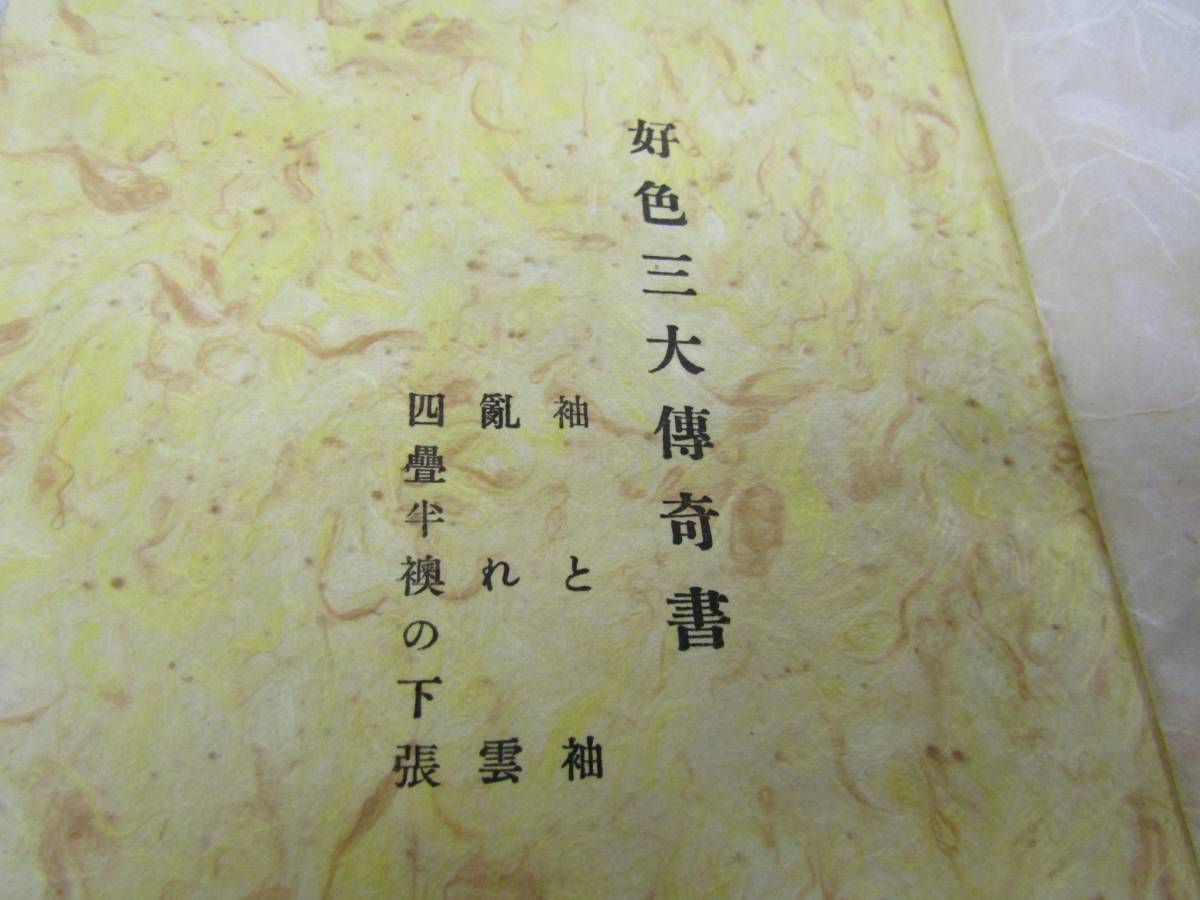 好色三大傳奇書
袖と袖
亂れ雲
四疊半襖の下張